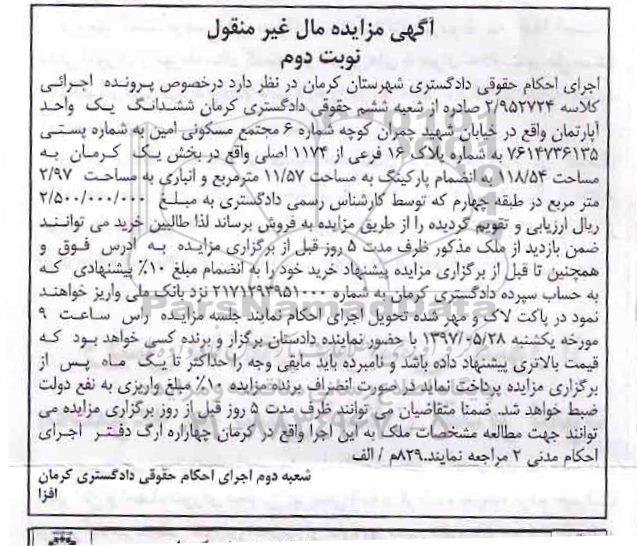 آگهی مزایده مال غیر منقول
نوبت دوم
اجرای احکام حقوقی دادگستری شهرستان کرمان در نظر دارد درخصوص پرونده اجرائی
کلاسه ۲/۹۵۲۷۲۴ صادره از شعبه ششم حقوقی دادگستری کرمان ششدانگ یک واحد
آپارتمان واقع در خیابان شهید چمران کوچه شماره ۶ مجتمع مسکونی امین به شماره پستی
۷۶۱۴۷۳۶۱۳۵ به شماره پلاک ۱۶ فرعی از ۱۱۷۴ اصلی واقع در بخش یک کرمان به
مساحت ۱۱۸/۵۴ به انضمام پارکینگ به مساحت ۱۱/۵۷ مترمربع و انباری به مساحت ۲/۹۷
متر مربع در طبقه چهارم که توسط کارشناس رسمی دادگستری به مبلغ ۲/۵۰۰/۰۰۰/۰۰۰
ریال ارزیابی و تقویم گردیده را از طریق مزایده به فروش برساند لذا طالبین خرید می توانند
ضمن بازدید از ملک مذکور ظرف مدت ۵ روز قبل از برگزاری مزایده به ادرس فوق و
همچنین تا قبل از برگزاری مزایده پیشنهاد خرید خود را به انضمام مبلغ ۱۰٪ پیشنهادی که
به حساب سپرده دادگستری کرمان به شماره ۲۱۷۱۲۹۳۹۵۱۰۰۰ نزد بانک ملی واریز خواهند
نمود در پاکت لاک و مهر شده تحویل اجرای احکام نمایند جلسه مزایده راس ساعت ۹
مورخه یکشنبه ۱۳۹۷/۰۵/۲۸ با حضور نماینده دادستان برگزار و برنده کسی خواهد بود که
قیمت بالاتری پیشنهاد داده باشد و نامبرده باید مابقی وجه را حداکثر تا یک ماه پس از
برگزاری مزایده پرداخت نماید در صورت انصراف برنده مزایده ۱۰٪ مبلغ واریزی به نفع دولت
ضبط خواهد شد. ضمنا متقاضیان می توانند ظرف مدت ۵ روز قبل از روز برگزاری مزایده می
توانند جهت مطالعه مشخصات ملک به این اجرا واقع در کرمان چهاراره ارگ دفتر اجرای
احکام مدنی ۲ مراجعه نمایند.۸۲۹م / الف
شعبه دوم اجرای احکام حقوقی دادگستری کرمان
افزا
ParsNamadData